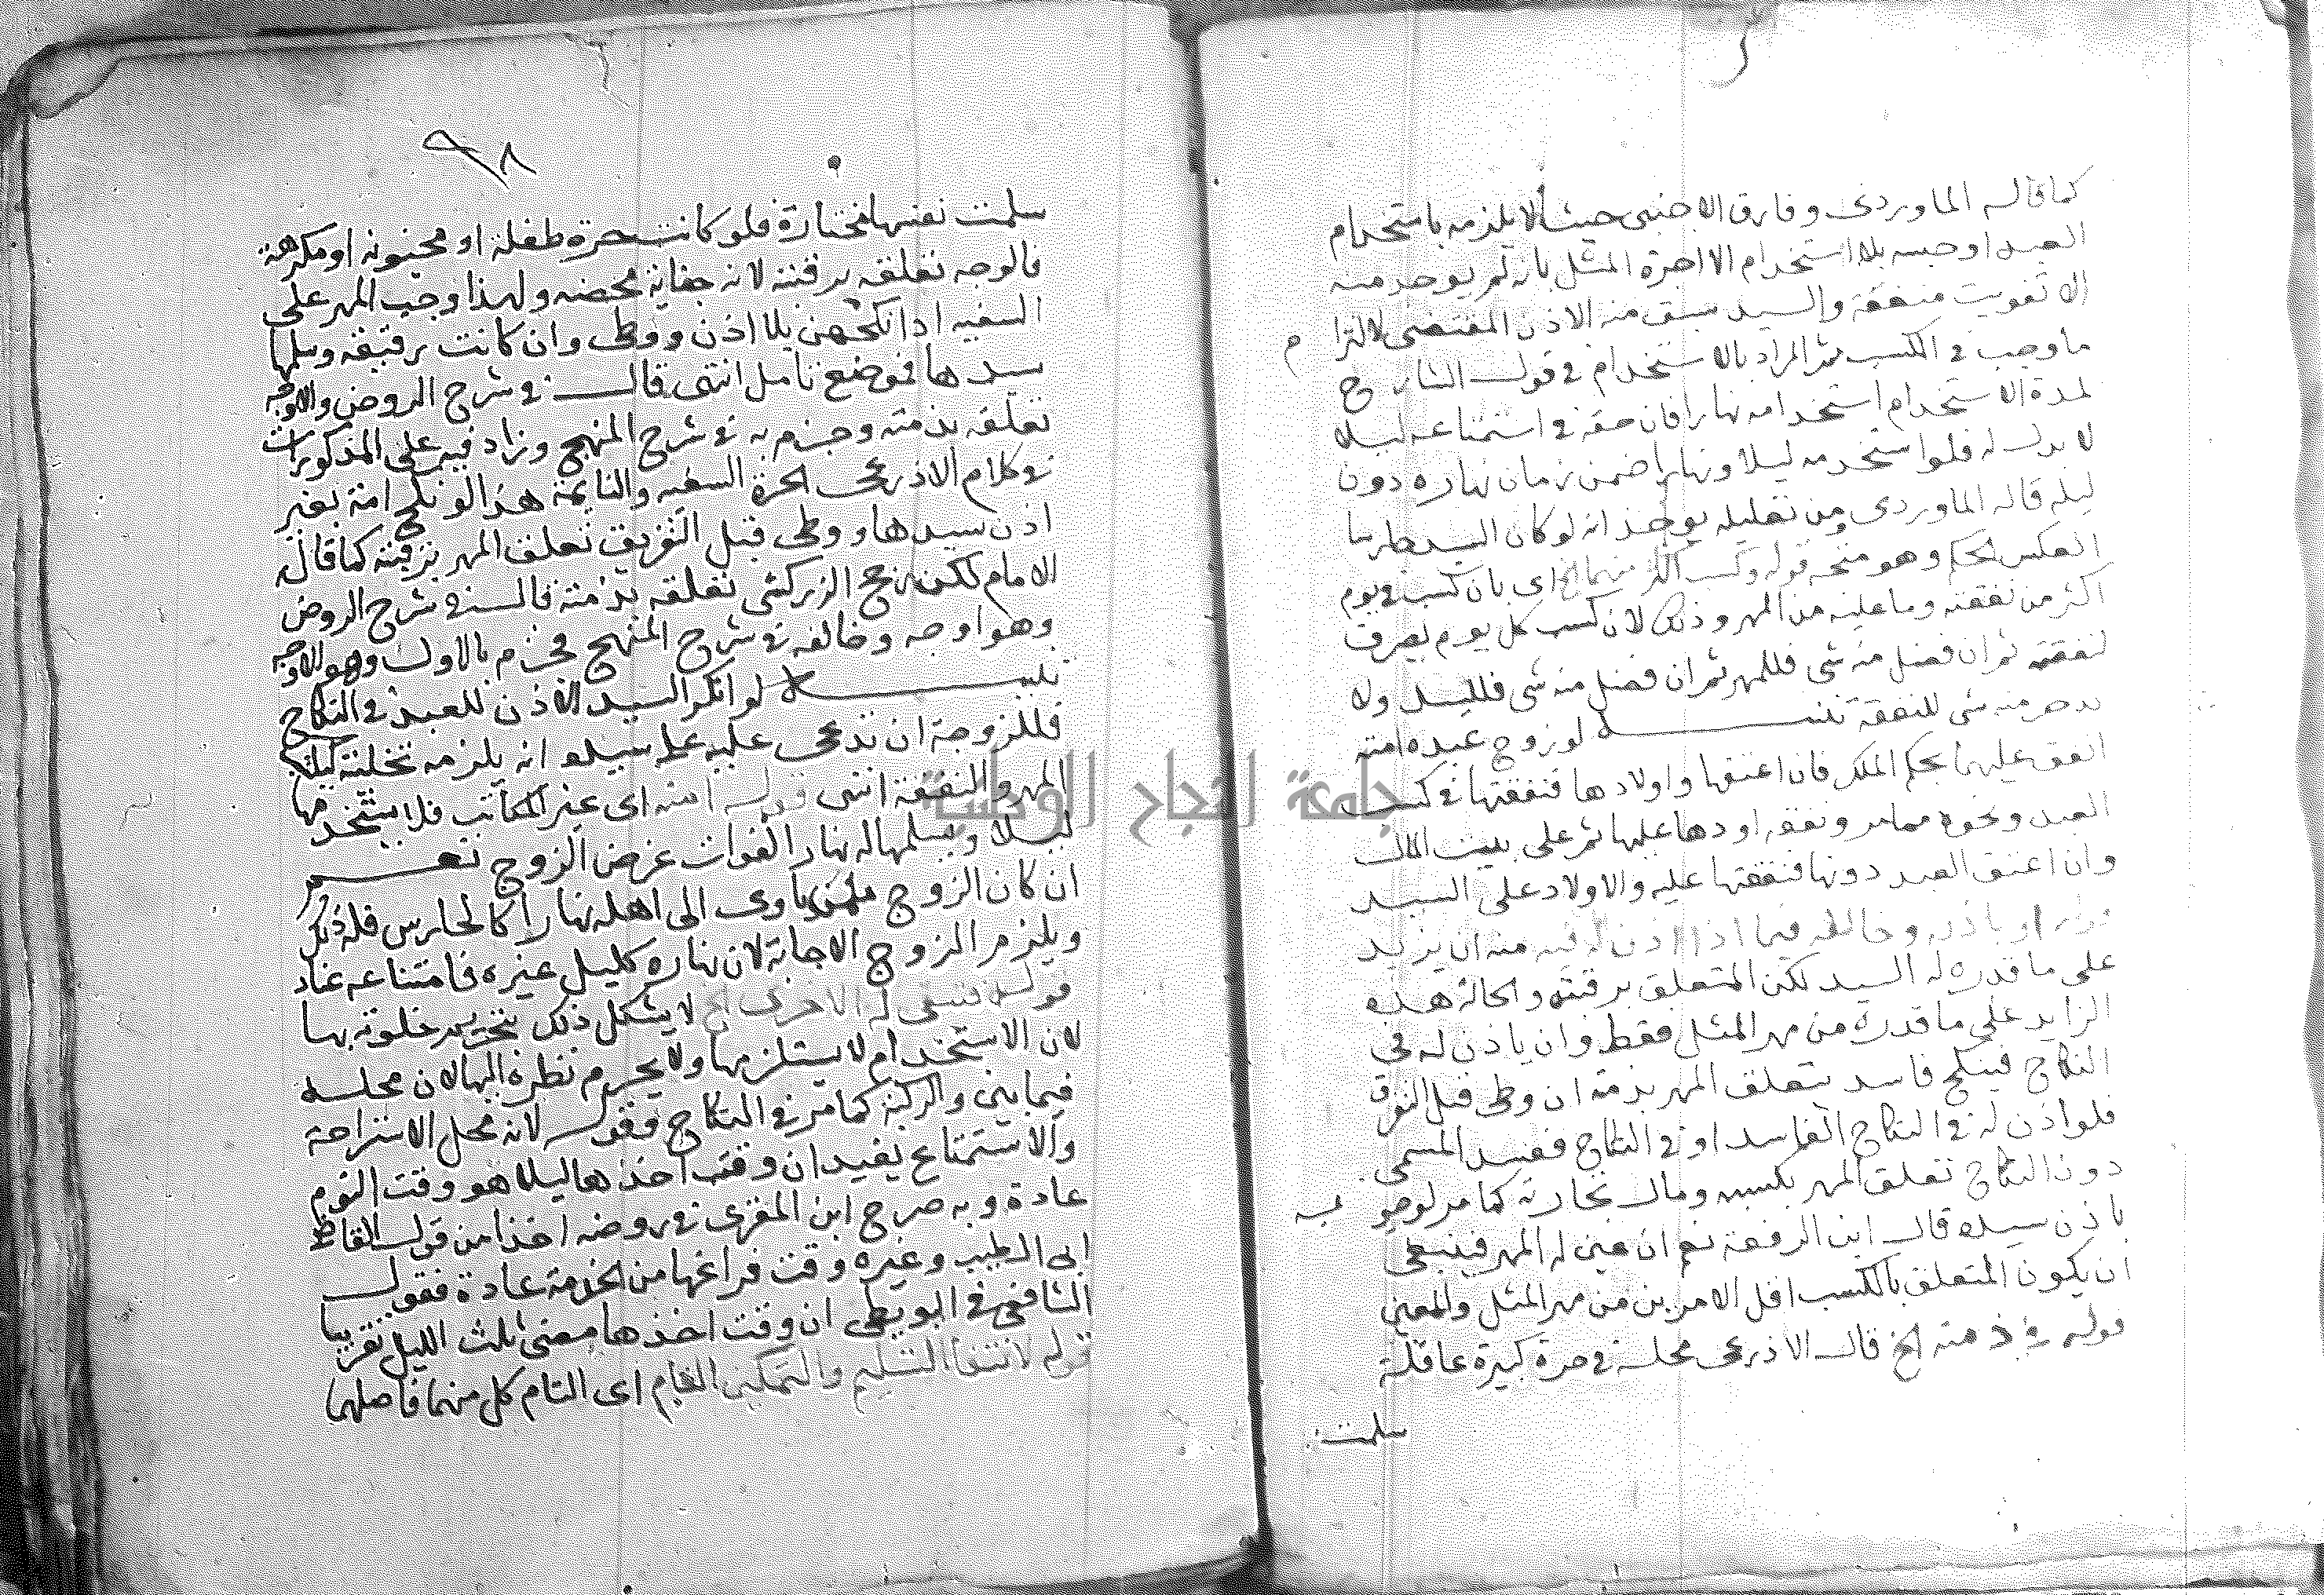 كما قاله الماوردى وفارق الاجنبى حيث لا يلزمه باستخدام
العبد او حبسه بلا استخدام الا اجرة المثل بانه لم يوجد منه
الا تفويت منفعة والسيد سبق منه الاذن المقتضى لالتزام
ما وجب فى الكسب ثم المراد بالاستخدام فى قول الشارح
لمدة الاستخدام استخدامه نهارا فان حقه فى استمتاعه ليلا
لا بدل له فلو استخدمه ليلا ونهارا ضمن زمان نهاره دون
ليله قاله الماوردى ومن تعليله يوخذ انه لو كان السيد حارسا
انعكس الحكم وهو متجه قوله وكسب اكثر منهما الخ اى بان كسب فى يوم
اكثر من نفقته وما عليه من المهر وذلك لان كسب كل يوم يصرف
لنفقته ثم ان فضل منه شى فللمهر ثم ان فضل منه شى فللسيد ولا
يدخر منه شى للنفقة تنبيه لو زوج عبده امته
انفق عليهما بحكم الملك فان اعتقها واولادها فنفقتها فى كسب
العبد ونحوه مما مر ونفقة اودها عليها ثم على بيت المال
وان اعتق العبد دونها فنفقتها عليه والاولاد على السيد
قوله او باذنه وخالفه فيما اذا اذن له فيه منه ان يزيد
على ما قدره له السيد لكن المتعلق برقبته والحالة هذه
الزايد على ما قدره من مهر المثل فقط وان ياذن له فى
النكاح فينكح فاسد يتعلق المهر بذمته ان وطى قبل التفرق
فلو اذن له فى النكاح الفاسد او فى النكاح ففسد المسمى
دون النكاح تعلق المهر بكسبه ومال تجارته كما مر لوجوبه
باذن سيده قال ابن الرفعة نعم ان عين له المهر فينبغى
ان يكون المتعلق بالكسب اقل الامرين من مهر المثل والمعين
قوله فى ذمته الخ قال الاذرعى محله فى حرة كبيرة عاقلة
سلمت
٩٨
سلمت نفسها مختارة فلو كانت حرة طفلة او مجنونه او مكرهة
فالوجه تعلقه برقبته لانه جناية محضه ولهذا وجب المهر على
السفيه اذا نكحهن بلا اذن ووطى وان كانت رقيقه وسلمها
سيدها فموضع تامل انتهى قال فى شرح الروض والاوجه
تعلقه بذمته وجزم به فى شرح المنهج وزاد فيه على المذكورات
فى كلام الاذرعى الحرة السفيه والنايمة هذا لو نكح امة بغير
اذن سيدها ووطى قبل التفريق تعلق المهر برقبته كما قال
الامام لكن رجح الزركشى تعلقه بذمته قال فى شرح الروض
وهو اوجه وخالفه فى شرح المنهج فجزم بالاول وهو الاوجه
تنبيه لو انكر السيد الاذن للعبد فى النكاح
فللزوجة ان تدعى عليه على سيده انه يلزمه تخليته ليكتسب
المهر والنفقة انتهى قوله امته اى غير المكاتب فلا يستخدمها
ليلا ويسلمها له نهارا لفوات غرض الزوج نعم
ان كان الزوج ممن ياوى الى اهله نهارا كالحارس فله ذلك
ويلزم الزوج الاجابة لان نهاره كليل غيره فامتناعه عناد
قوله فتبقى له الاخرى الخ لا يشكل ذلك بتحريم خلوته بها
لان الاستخدام لا يستلزمها ولا يحرم نظره اليها لان محله
فيما بين والركبة كما مر فى النكاح فقوله لانه محل الاستراحة
والاستمتاع يفيد ان وقت اخذها ليلا هو وقت النوم
عادة وبه صرح ابن المقرى فى روضه اخذا من قول القاضى
ابى الطيب وغيره وقت فراغها من الخدمة عادة فقول
الشافعى فى البويطى ان وقت اخذها مضى ثلث الليل تقريبا
قوله لانتفا التسليم والتمكين التام اى التام كل منهما فاصلهما